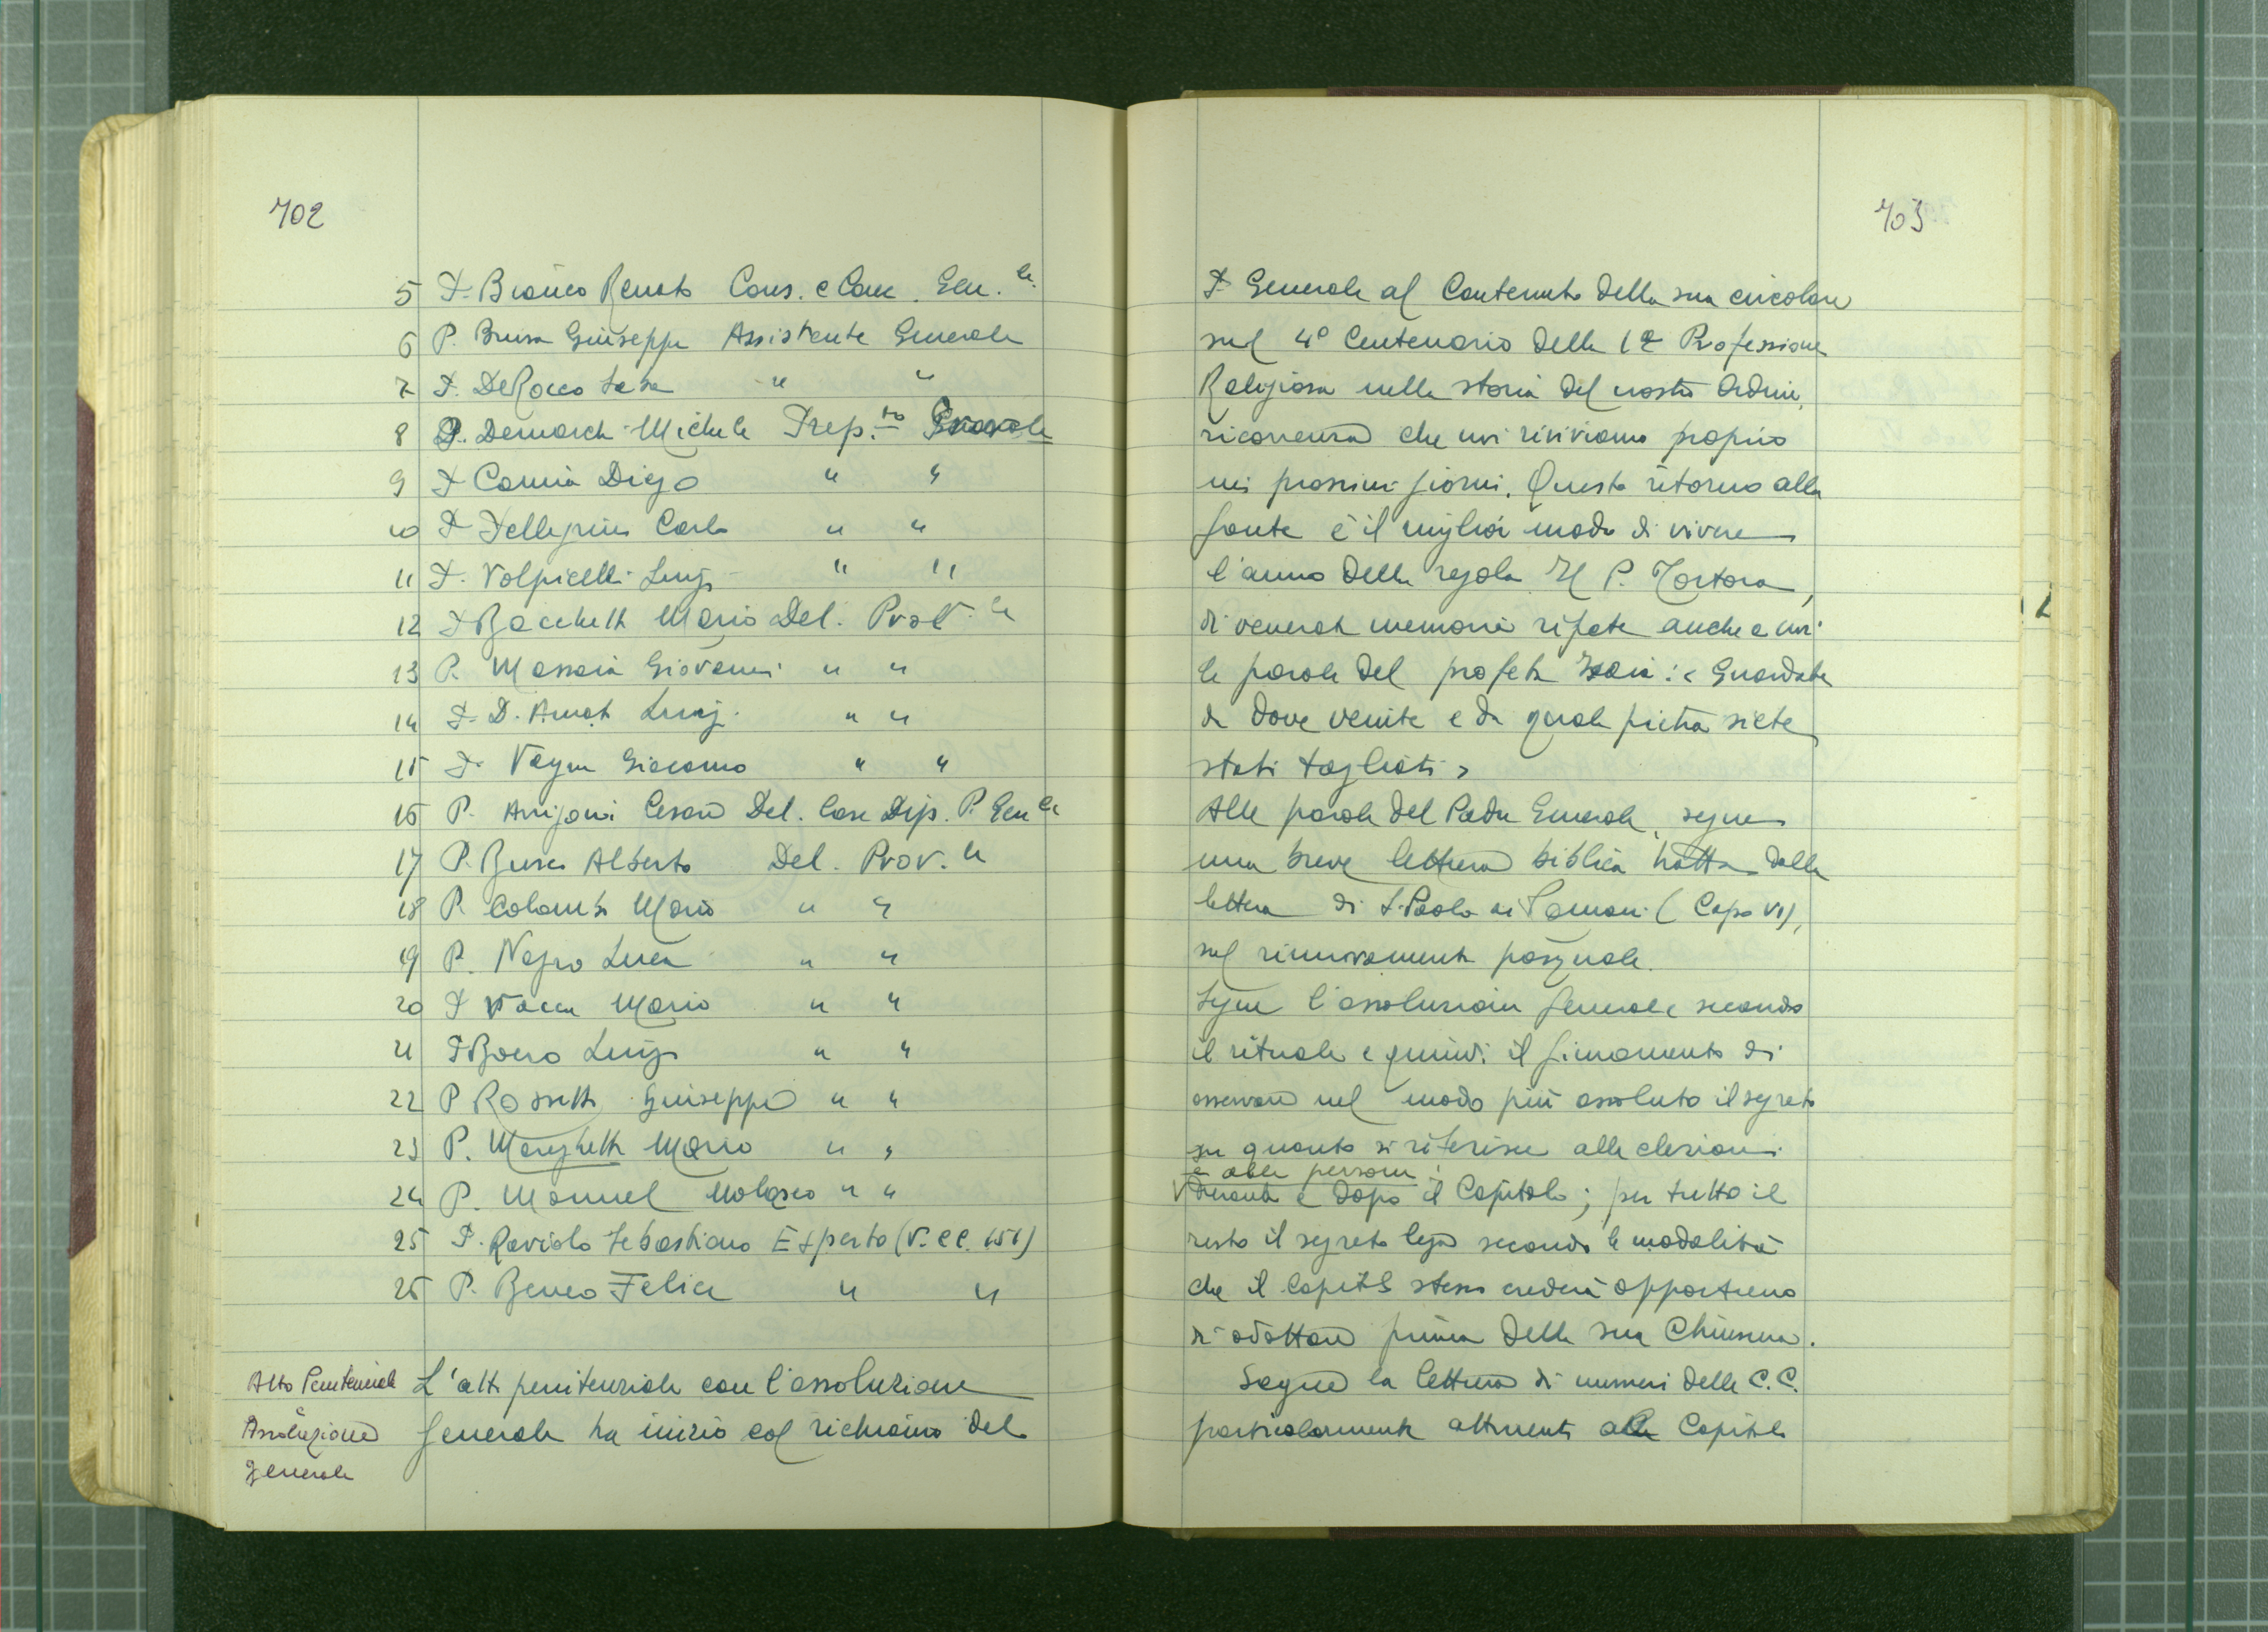 702
5 P. Bianco Renato Cons. e Canc. Gen.le
6 P. Brusa Giuseppe Assistente Generale
7 P. DeRocco Saba " "
8 P. Demarchi Michele Prep.to Prov.le
9 P. Camia Diego " "
10 P. Pellegrini Carlo " "
11 P. Volpicelli Luigi " "
12 P. Bacchetti Mario Del. Prov.le
13 P. Massaia Giovanni " "
14 P. D. Amato Luigi " "
15 P. Vayra Giacomo " "
16 P. Arrigoni Cesare Del. Case Dip. P. Gen.le
17 P. Busco Alberto Del. Prov.le
18 P. Colombo Mario " "
19 P. Negro Luca " "
20 P. Vacca Mario " "
21 P. Boero Luigi " "
22 P. Rossetti Giuseppe " "
23 P. Manghetti Mario " "
24 P. Manuel Molasco " "
25 P. Raviolo Sebastiano Esperto (V. CC. 151)
26 P. Beneo Felice " "
Atto Penitenziale
e
Assoluzione
generale
L'atto penitenziale con l'assoluzione
generale ha inizio col richiamo del
703
P. Generale al contenuto della sua circolare
sul 4° Centenario della 1a Professione
Religiosa nella storia del nostro Ordine,
ricorrenza che noi riviviamo proprio
nei prossimi giorni. Questo ritorno alla
fonte è il miglior modo di vivere
l'anno della regola. Il P. Tortora,
di venerata memoria ripete anche a noi
le parole del profeta Isaia: « Guardate
da dove venite e da quale pietra siete
stati tagliati »
Alle parole del Padre Generale, segue
una breve lettura biblica tratta dalla
lettera di S. Paolo ai Romani (Capo VI),
sul rinnovamento pasquale.
Segue l'assoluzione generale secondo
il rituale e quindi il giuramento di
osservare nel modo più assoluto il segreto
su quanto si riferisce alle elezioni
e alle persone;
durante e dopo il Capitolo; per tutto il
resto il segreto lega secondo le modalità
che il Capitolo stesso crederà opportuno
di adottare prima della sua Chiusura.
Segue la lettura di numeri delle C.C.
particolarmente attinenti al Capitolo